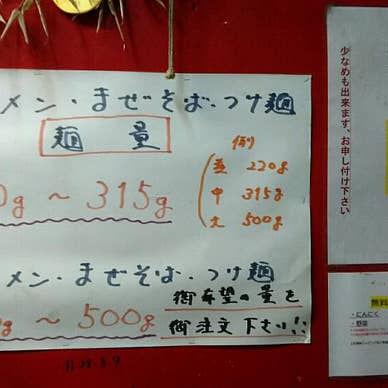 メン・まぜそば・つけ麺
麺 量
0g ～ 315g
例
並 220g
中 315g
大 500g
メン・まぜそば・つけ麺
御希望の量を
御注文下さい!!
g ～ 500g
H 28 8 9
少なめも出来ます、お申し付け下さい
無料
・にんにく
・野菜